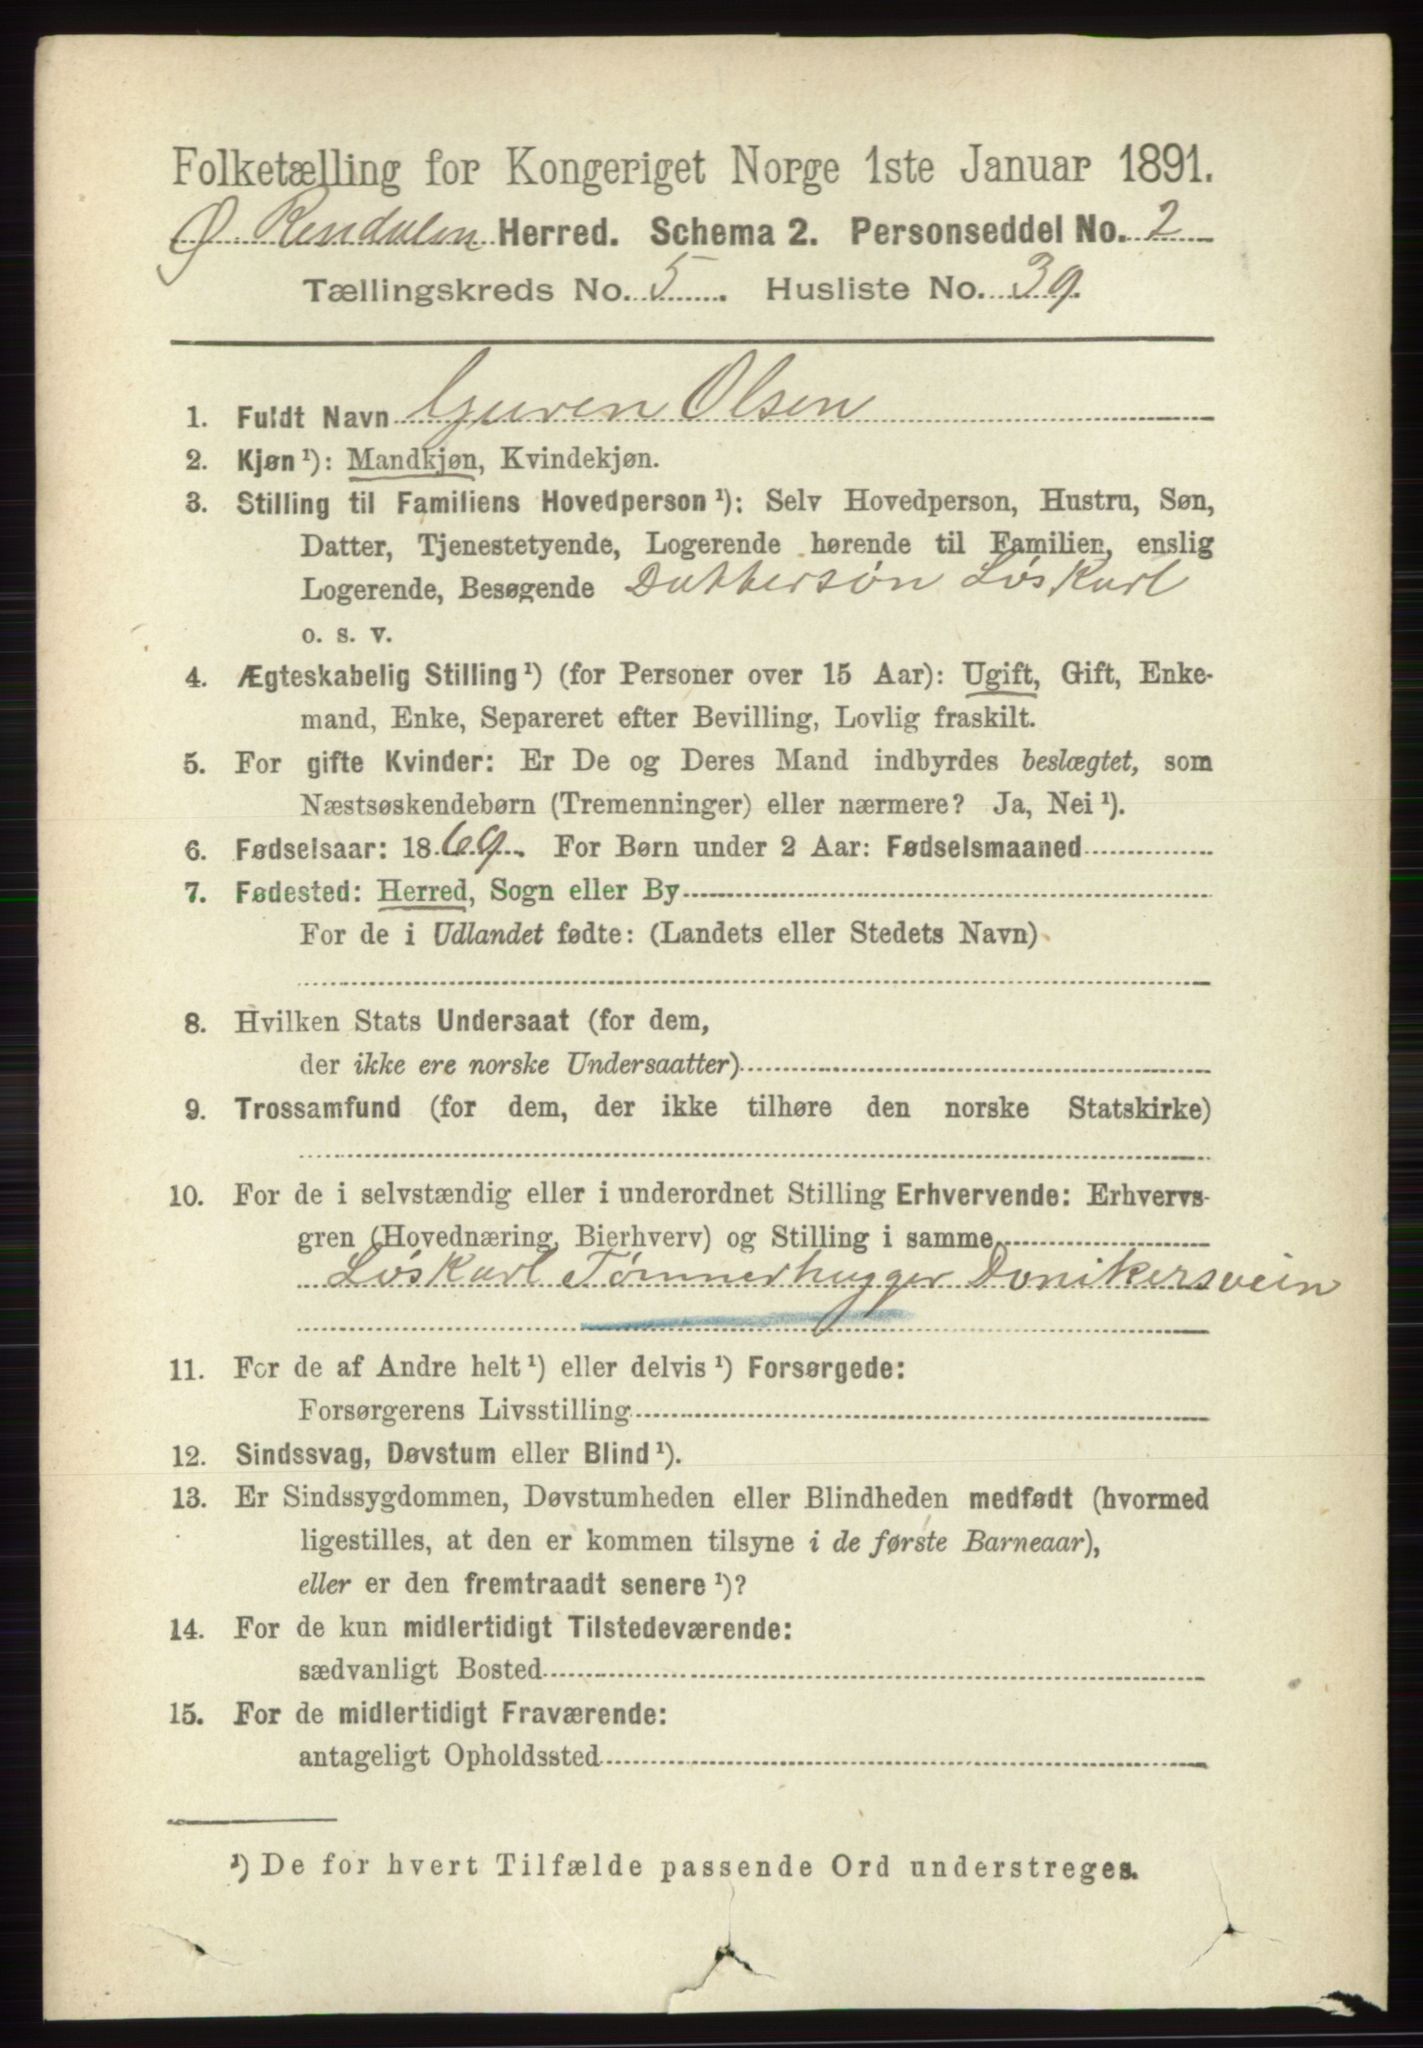 Folketælling for Kongeriget Norge 1ste Januar 1891.
Ø. Rendalen Herred. Schema 2. Personseddel No. 2
Tællingskreds No. 5. Husliste No. 39.
1. Fuldt Navn Guren Olsen
2. Kjøn ¹): Mandkjøn, Kvindekjøn.
3. Stilling til Familiens Hovedperson ¹): Selv Hovedperson, Hustru, Søn,
Datter, Tjenestetyende, Logerende hørende til Familien, enslig
Logerende, Besøgende Dattersøn Løskarl
o. s. v.
4. Ægteskabelig Stilling ¹) (for Personer over 15 Aar): Ugift, Gift, Enke-
mand, Enke, Separeret efter Bevilling, Lovlig fraskilt.
5. For gifte Kvinder: Er De og Deres Mand indbyrdes beslægtet, som
Næstsøskendebørn (Tremenninger) eller nærmere? Ja, Nei ¹).
6. Fødselsaar: 1869. For Børn under 2 Aar: Fødselsmaaned
7. Fødested: Herred, Sogn eller By
For de i Udlandet fødte: (Landets eller Stedets Navn)
8. Hvilken Stats Undersaat (for dem,
der ikke ere norske Undersaatter)
9. Trossamfund (for dem, der ikke tilhøre den norske Statskirke)
10. For de i selvstændig eller i underordnet Stilling Erhvervende: Erhvervs-
gren (Hovednæring, Bierhverv) og Stilling i samme
Løskarl Tømmerhugger
11. For de af Andre helt ¹) eller delvis ¹) Forsørgede:
Forsørgerens Livsstilling
12. Sindssvag, Døvstum eller Blind ¹).
13. Er Sindssygdommen, Døvstumheden eller Blindheden medfødt (hvormed
ligestilles, at den er kommen tilsyne i de første Barneaar),
eller er den fremtraadt senere ¹)?
14. For de kun midlertidigt Tilstedeværende:
sædvanligt Bosted
15. For de midlertidigt Fraværende:
antageligt Opholdssted
¹) De for hvert Tilfælde passende Ord understreges.